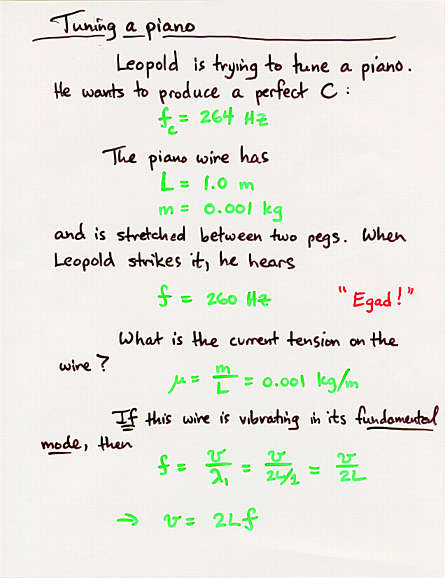 Tuning a piano
Leopold is trying to tune a piano.
He wants to produce a perfect C :
f_c = 264 Hz
The piano wire has
L = 1.0 m
m = 0.001 kg
and is stretched between two pegs. When
Leopold strikes it, he hears
f = 260 Hz "Egad!"
What is the current tension on the
wire?
μ = m/L = 0.001 kg/m
If this wire is vibrating in its fundamental
mode, then
f = v/λ₁ = v/(2L/1) = v/2L
⇒ v = 2Lf